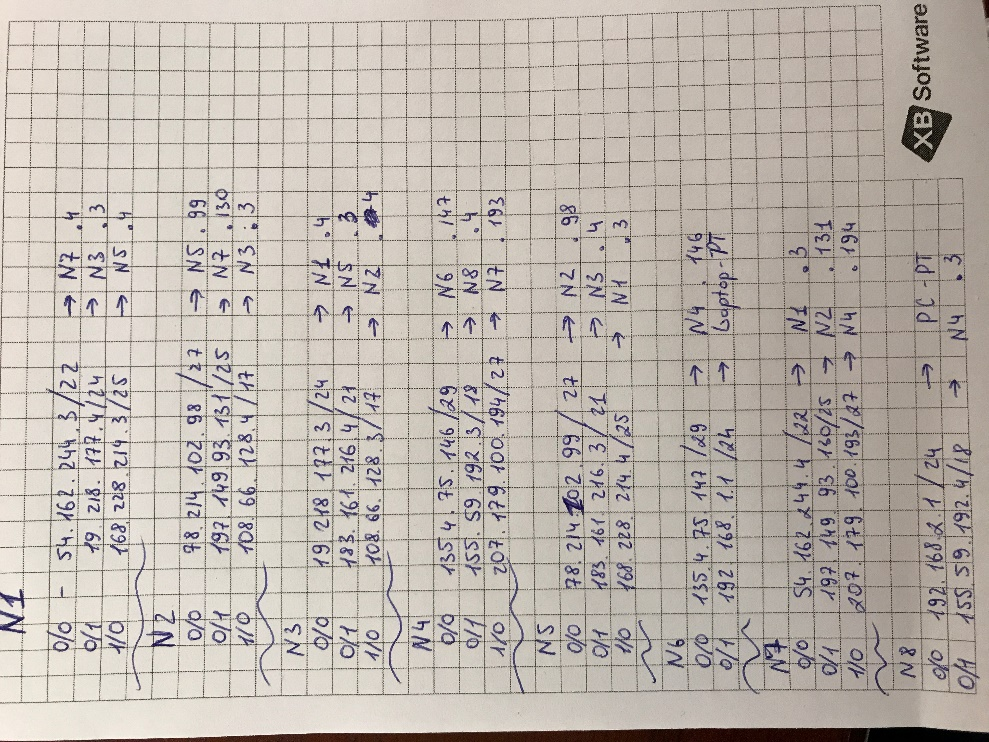 N1
0/0 - 54.162.244.3/22 → N7 .4
0/1 19.218.177.4/24 → N3 .3
1/0 168 228.214.3/25 → N5 .4
N2
0/0 78.214.102.98/27 → N5 .99
0/1 197 149 93.131/25 → N7 .130
1/0 108.66.128.4/17 → N3 .3
N3
0/0 19 218 177 3/24 → N1 .4
0/1 183.161.216 4/21 → N5 .3
1/0 108.66.128.3/17 → N2 .4
N4
0/0 135 4.75.146/29 → N6 .147
0/1 155.59 192.3/18 → N8 .4
1/0 207.179.100.194/27 → N7 .193
N5
0/0 78.214.102.99/27 → N2 .98
0/1 183.161.216.3/21 → N3 .4
1/0 168.228.214.4/25 → N1 .3
N6
0/0 135.4.75.147/29 → N4 .146
0/1 192 168.1.1/24 → Laptop-PT
N7
0/0 54.162.244.4/22 → N1 .3
0/1 197 149.93.130/25 → N2 .131
1/0 207.179.100.193/27 → N4 .194
N8
0/0 192.168.2.1/24 → PC-PT
0/1 155.59.192.4/18 → N4 .3
XB Software